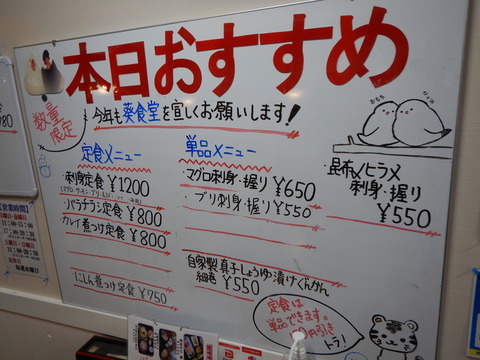 本日おすすめ
数量
限定
今年も葵食堂を宜しくお願いします!
定食メニュー
・刺身定食 ¥1200
・バラチラシ定食 ¥800
カレイ煮つけ定食 ¥800
にしん煮つけ定食 ¥750
単品メニュー
・マグロ刺身・握り ¥650
・ブリ刺身・握り ¥550
自家製真子しょうゆ漬けぐんかん
細巻 ¥550
おもち
・昆布〆ヒラメ
刺身・握り
¥550
定食は
単品できます。
円引き
トラ!
【営業時間】